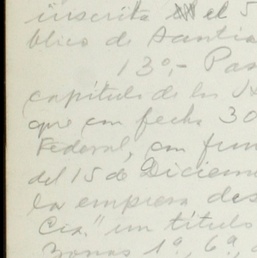 inscrita el 5
blico de Santia
13º.- Pas
capítulo de los
que con fecha 30
Federal, con fun
del 15 de Diciem
la empresa des
Cía." un título
Zonas 1ª, 6ª,